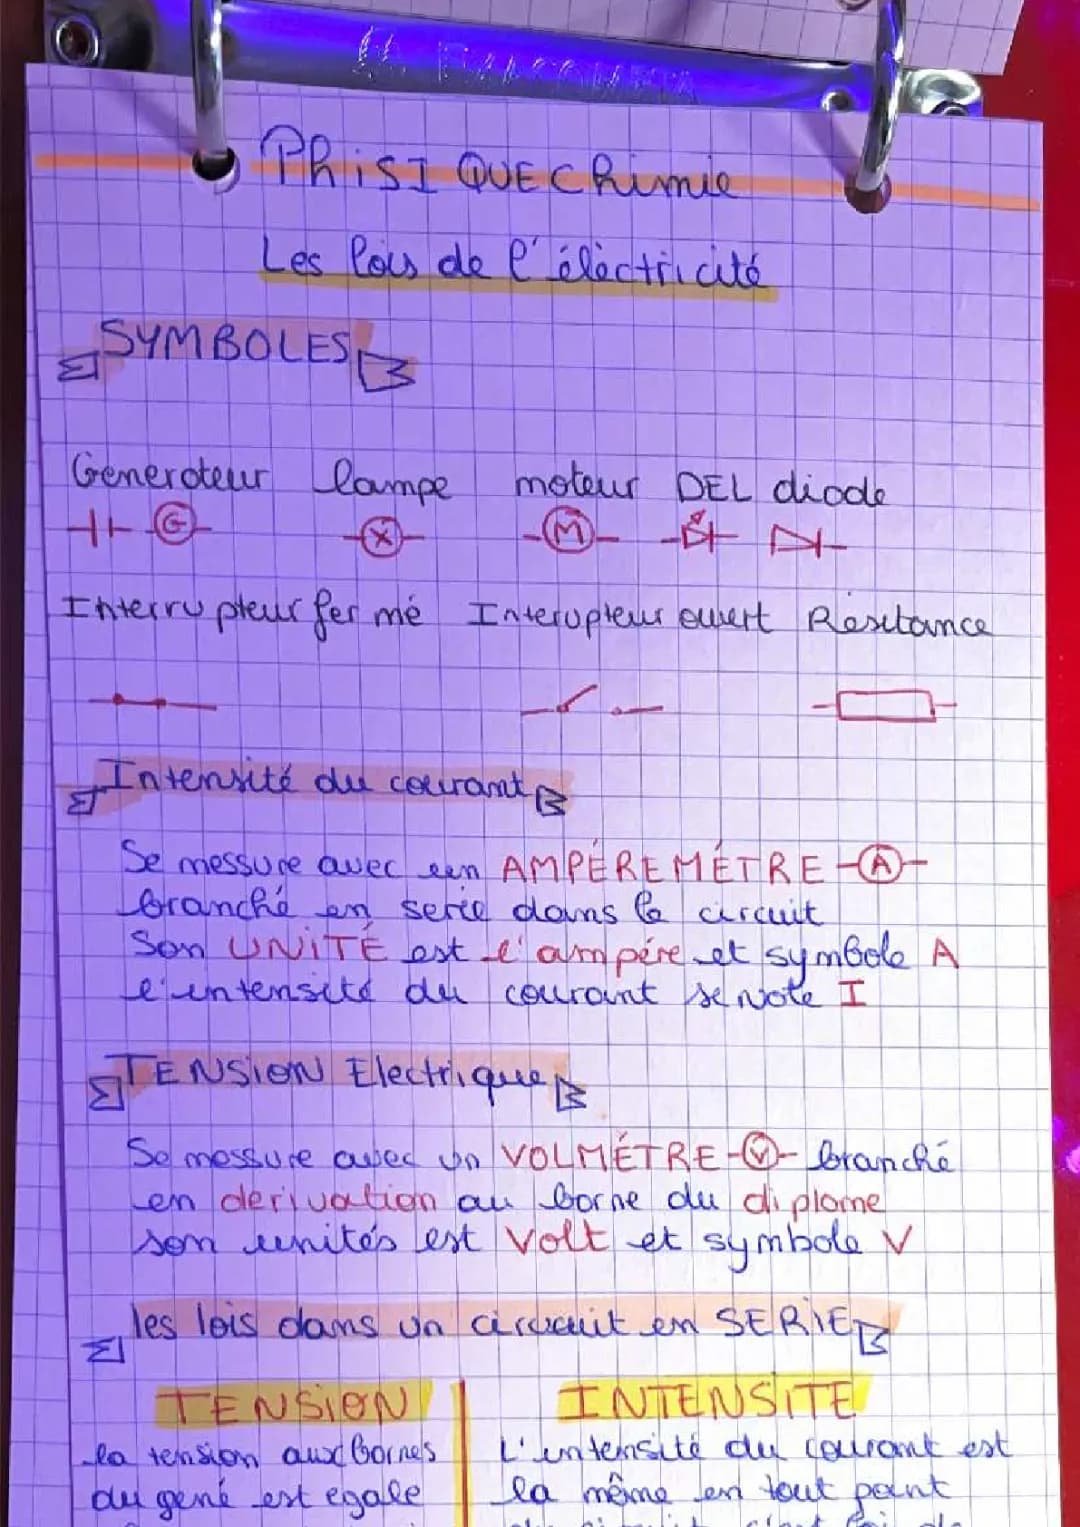 PhiSIQUE Chimie
Les lois de l'éléctricité
SYMBOLES
Generateur lampe moteur DEL diode
G X M
Interrupteur fermé Interupteur ouvert Résitance
Intensité du courant
Se messure avec un AMPÉREMÉTRE A
branché en serie dans le circuit
Son UNITÉ est l'ampére et symbole A
l'intensité du courant se note I
TENSION Electrique
Se messure avec un VOLMÉTRE V branché
en derivation au borne du diplome
son unités est Volt et symbole V
les lois dans un circuit en SERIE
TENSION
la tension aux bornes
du gené est egale
INTENSITE
L'intensité du courant est
la même en tout point